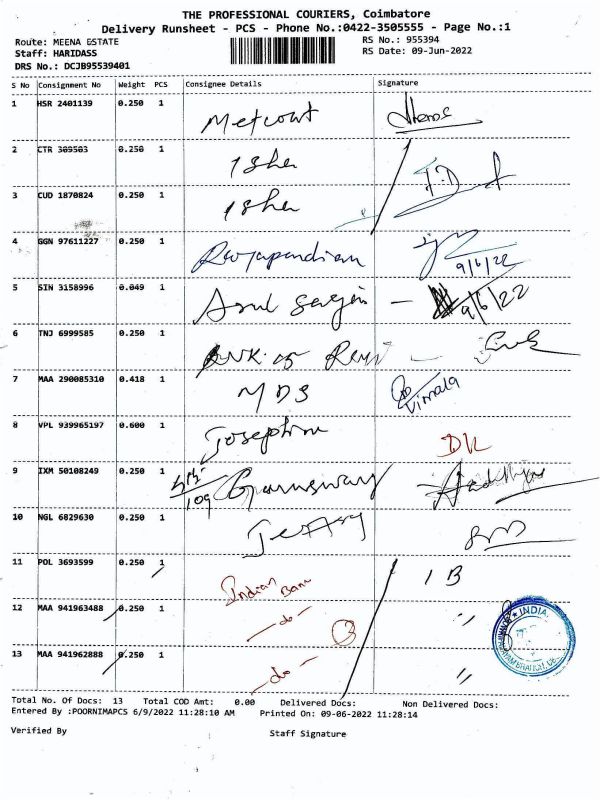 THE PROFESSIONAL COURIERS, Coimbatore
Delivery Runsheet - PCS - Phone No.:0422-3505555 - Page No.:1
Route: MEENA ESTATE
RS No.: 955394
Staff: HARIDASS
RS Date: 09-Jun-2022
DRS No.: DCJB95539401
S No Consignment No Weight PCS Consignee Details Signature
1 HSR 2401139 0.250 1
2 CTR 309503 0.250 1 Isha
3 CUD 1870824 0.250 1 Isha
4 GGN 97611227 0.250 1 Rajapandian
9/6/22
5 SIN 3158996 0.049 1 Arul - 9/6/22
6 TNJ 6999585 0.250 1
7 MAA 290085310 0.418 1 MDS Vimala
8 VPL 939965197 0.600 1 Josephine DK
9 IXM 50108249 0.250 1 109
10 NGL 6829630 0.250 1
11 POL 3693599 0.250 1 Indian Bank I B
12 MAA 941963488 0.250 1 - do - 3 "
13 MAA 941962888 0.250 1 - do - "
INDIA
Total No. Of Docs: 13 Total COD Amt: 0.00 Delivered Docs: Non Delivered Docs:
Entered By :POORNIMAPCS 6/9/2022 11:28:10 AM Printed On: 09-06-2022 11:28:14
Verified By Staff Signature